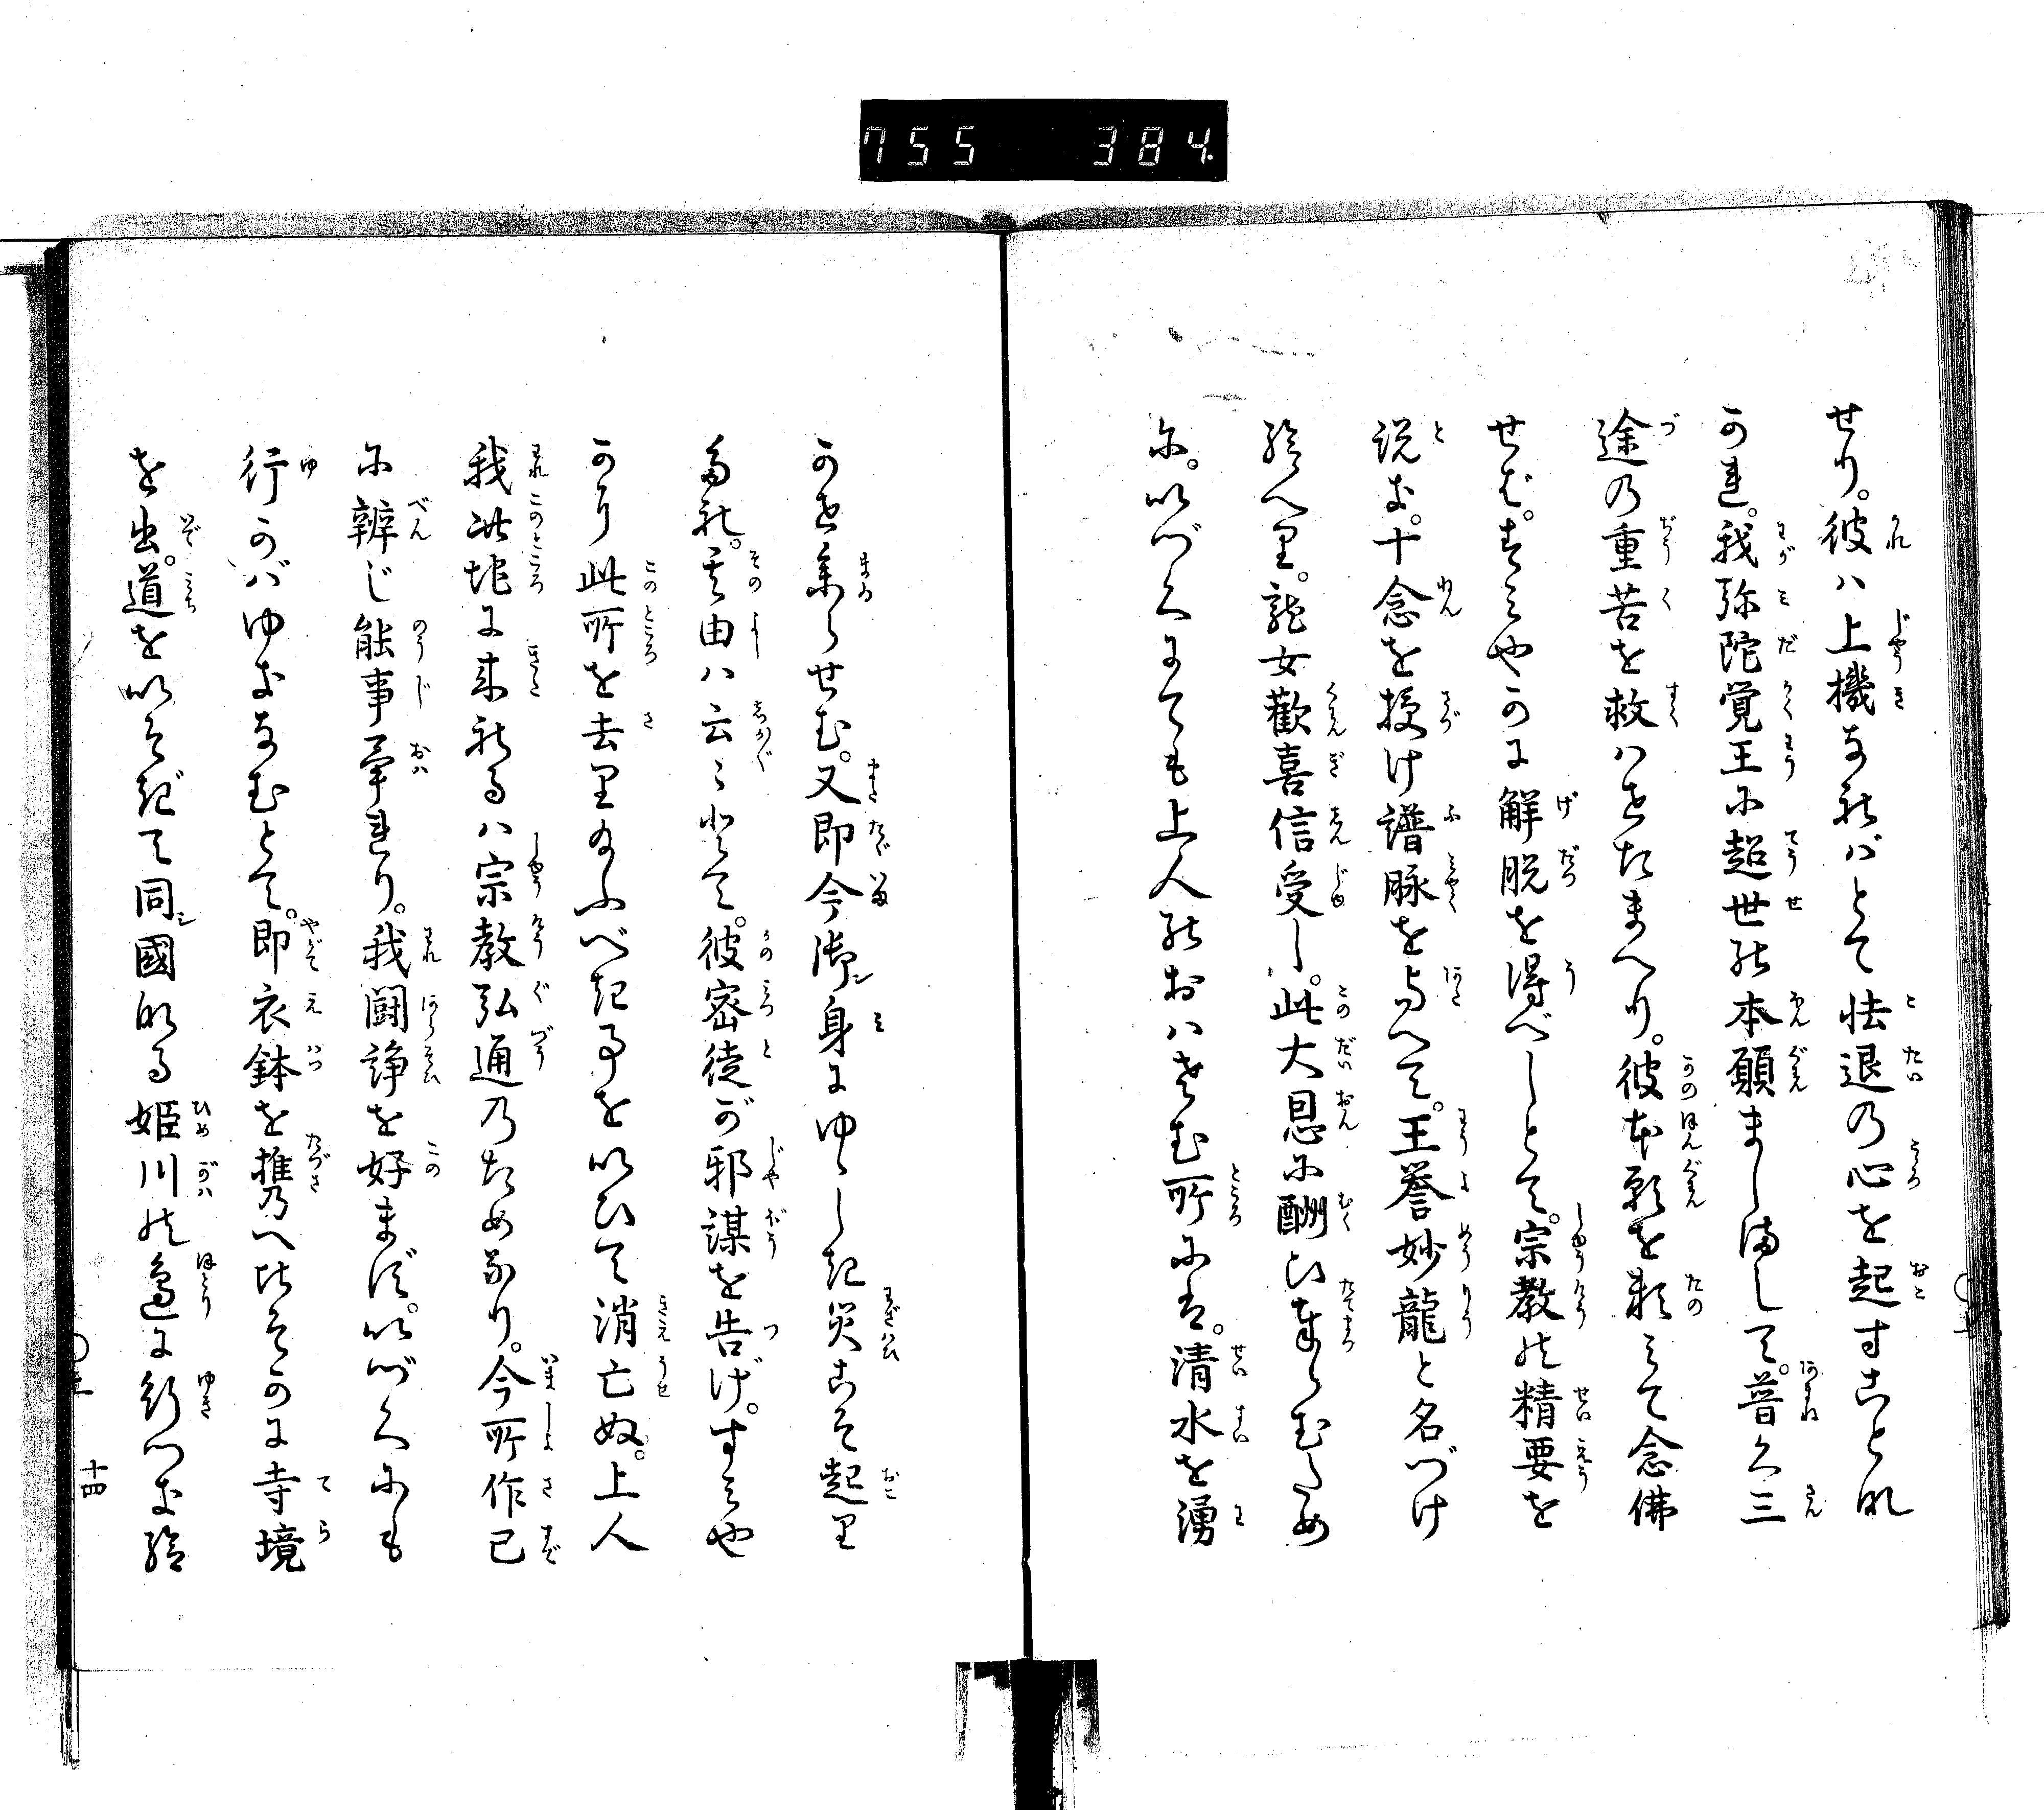 755 384.
せり。彼ハ上機なれバとて怯退の心を起すことな
かれ。我弥陀覚王に超世の本願ましまして。普く三
途の重苦を救ハせたまへり。彼本願を頼ミて念佛
せば。すミやかに解脱を得べしとて。宗教の精要を
説な。十念を授け譜脉を与へて。王誉妙龍と名づけ
給へり。龍女歡喜信受し。此大恩に酬ひ奉らむため
に。いづくにても上人のおハさむ所にハ。清水を湧
かせ参らせむ。又即今御身にゆゝしき災こそ起り
たれ。其由ハ云々とて。彼密徒が邪謀を告げ。すミや
かに此所を去り給ふべき事をいひて消亡ぬ。上人
我此地に来れるハ宗教弘通のためなり。今所作已
に辨じ能事畢れり。我闘諍を好まず。いづくにも
行かバゆきなむとて。即衣鉢を携へひそかに寺境
を出。道をいそぎて同國なる姫川の邊に行つき給
十四